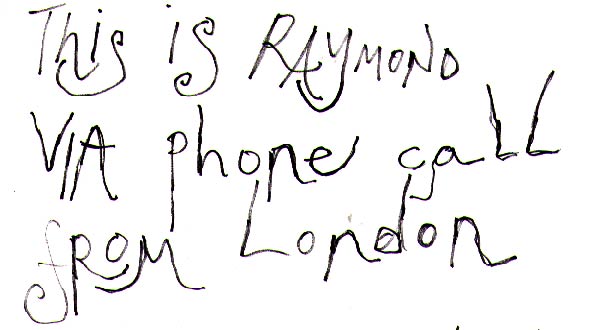 This is RAYMOND
VIA phone call
fROM London